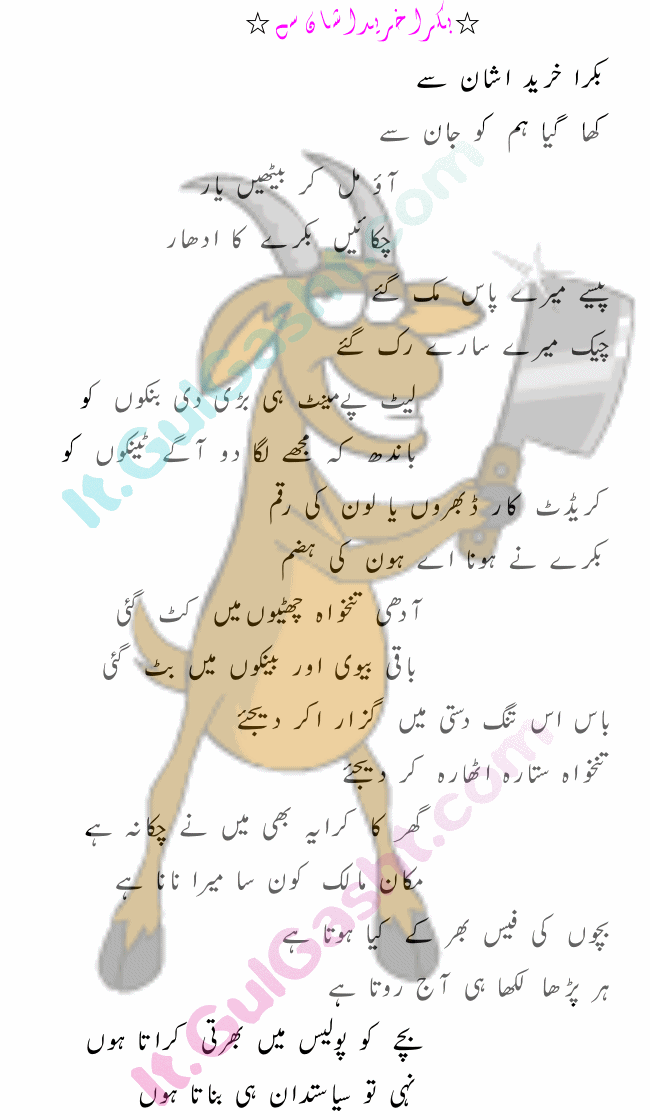 ☆بکرا خریدا شان سے☆
بکرا خرید اشان سے
کھا گیا ہم کو جان سے
آؤ مل کر بیٹھیں یار
چکائیں بکرے کا ادھار
پیسے میرے پاس مک گئے
چیک میرے سارے رک گئے
لیٹ پےمینٹ ہی بڑی دی بنکوں کو
باندھ کہ مجھے لگا دو آگے ٹینکوں کو
کریڈٹ کار ڈبھروں یا لون کی رقم
بکرے نے ہونا اے ہون کی ہضم
آدھی تنخواہ چھٹیوں میں کٹ گئی
باقی بیوی اور بینکوں میں بٹ گئی
باس اس تنگ دستی میں گزار اکر دیجئے
تنخواہ ستارہ اٹھارہ کر دیجئے
گھر کا کرایہ بھی میں نے چکانہ ہے
مکان مالک کون سا میرا نانا ہے
بچوں کی فیس بھر کے کیا ہوتا ہے
ہر پڑھا لکھا ہی آج روتا ہے
بچے کو پولیس میں بھرتی کراتا ہوں
نہی تو سیاستدان ہی بناتا ہوں
It.GulGasht.com
It.GulGasht.com